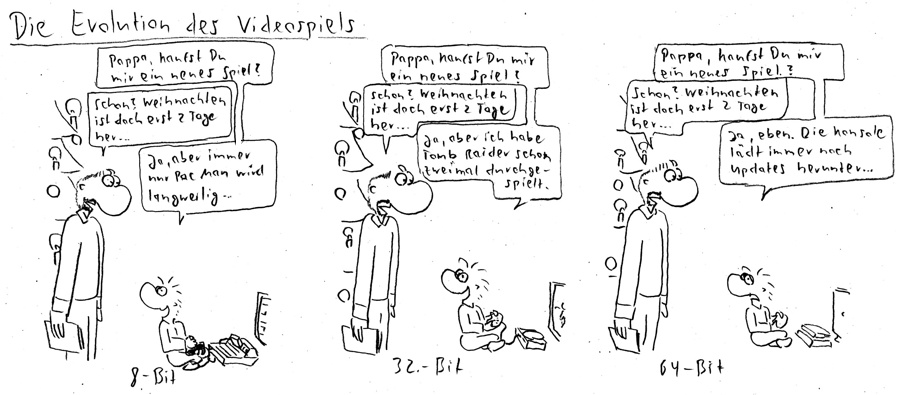 Die Evolution des Videospiels
Pappa, kaufst Du
mir ein neues Spiel?
Schon? Weihnachten
ist doch erst 2 Tage
her...
Ja, aber immer
nur Pac Man wird
langweilig...
8-Bit
Pappa, kaufst Du mir
ein neues Spiel?
Schon? Weihnachten
ist doch erst 2 Tage
her...
Ja, aber ich habe
Tomb Raider schon
zweimal durchge-
spielt.
32.-Bit
Pappa, kaufst Du mir
ein neues Spiel?
Schon? Weihnachten
ist doch erst 2 Tage
her...
Ja, eben. Die Konsole
lädt immer noch
updates herunter...
64-Bit